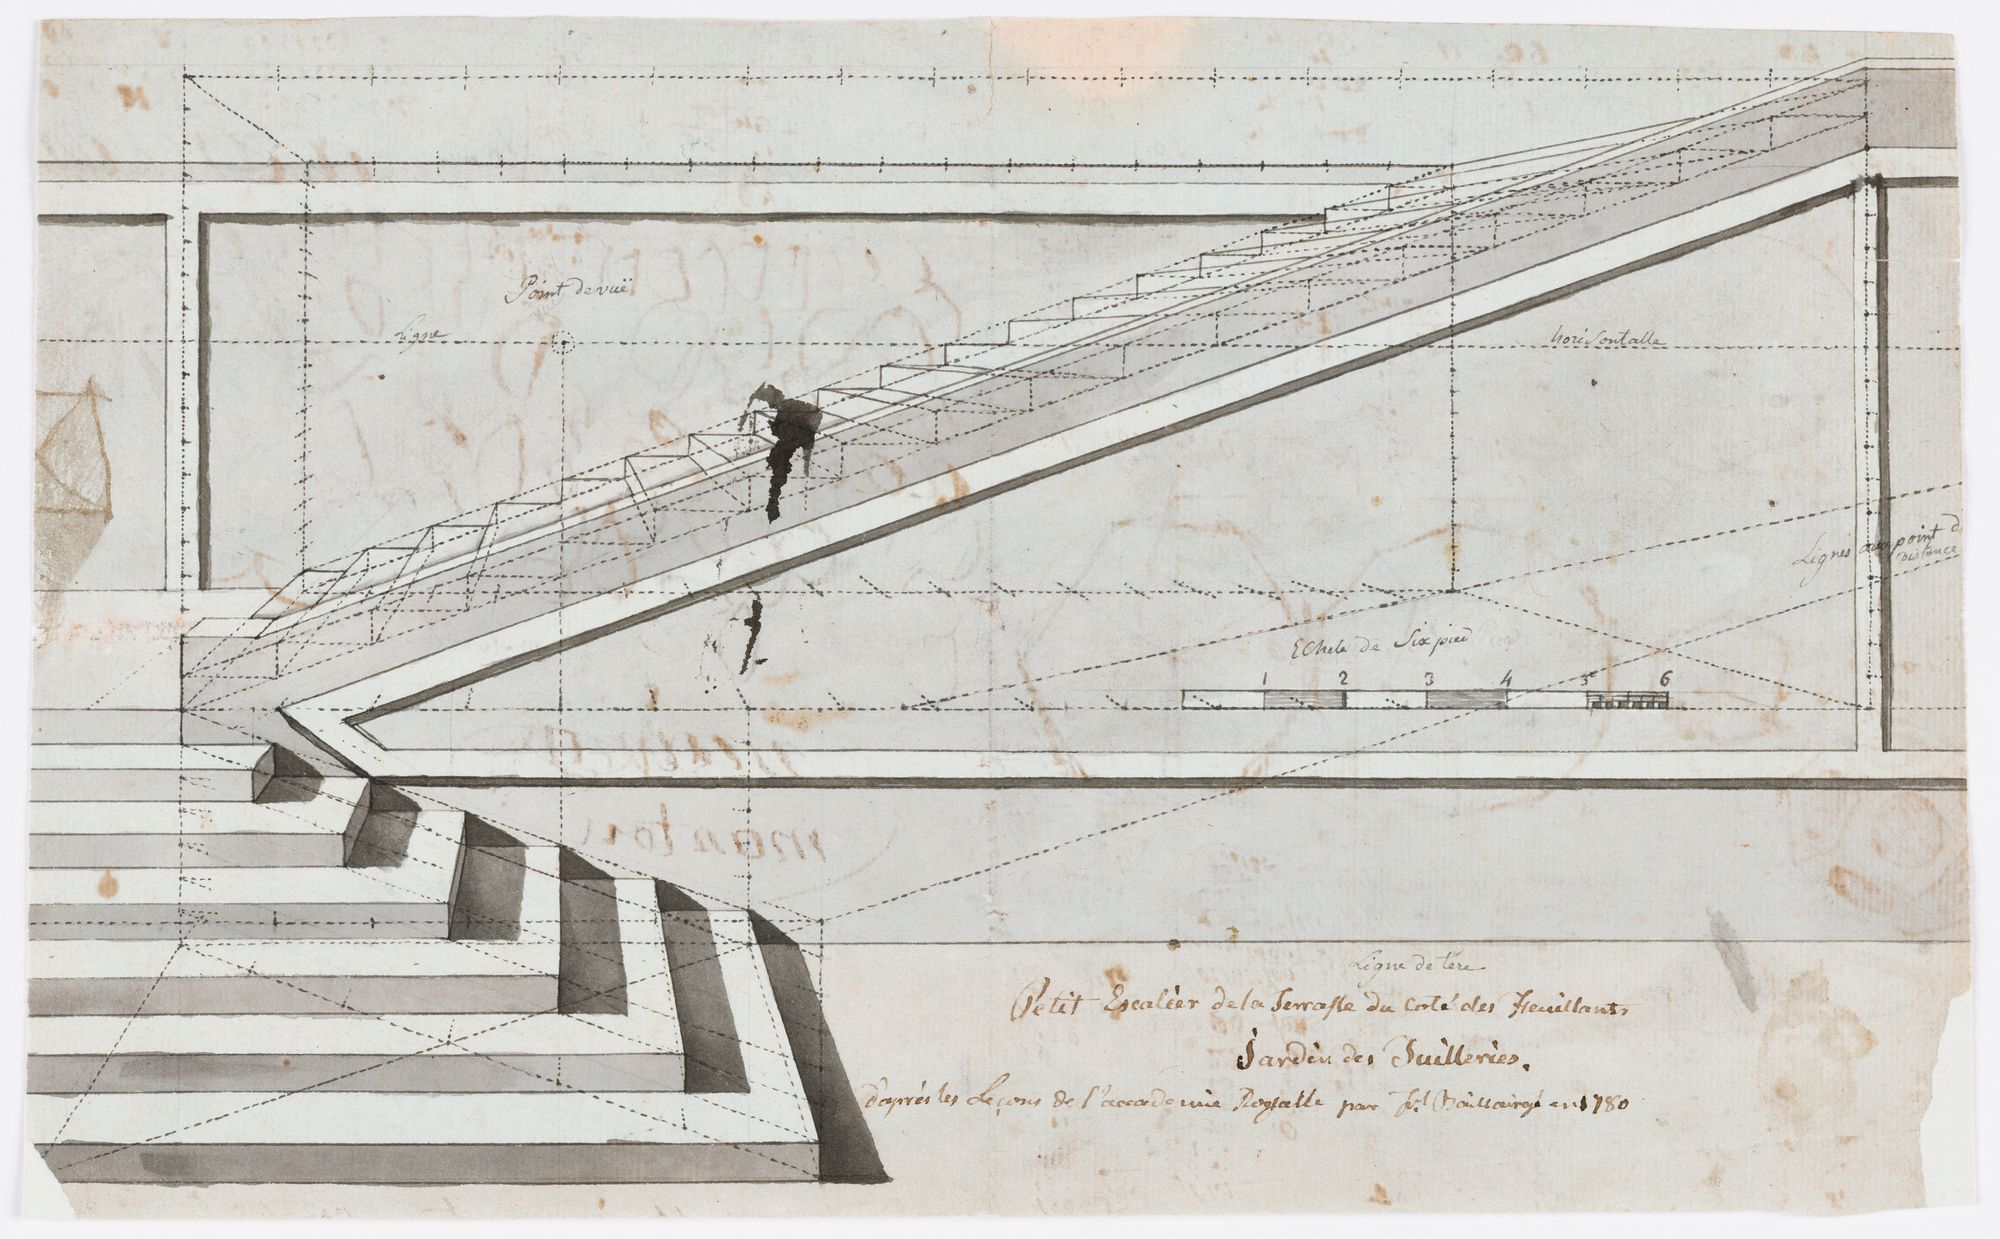 Point de vuë
Ligne
horisontalle
Lignes aux point d
Distance
Echele de Six pied
1 2 3 4 5 6
Ligne de tére
Petit Escalièr de la Terrasse du Coté des Feuillants
Jardin des Tuilleries.
d'après les Leçons de l'accademie Royalle par frs. Baillairgé en 1780
manton